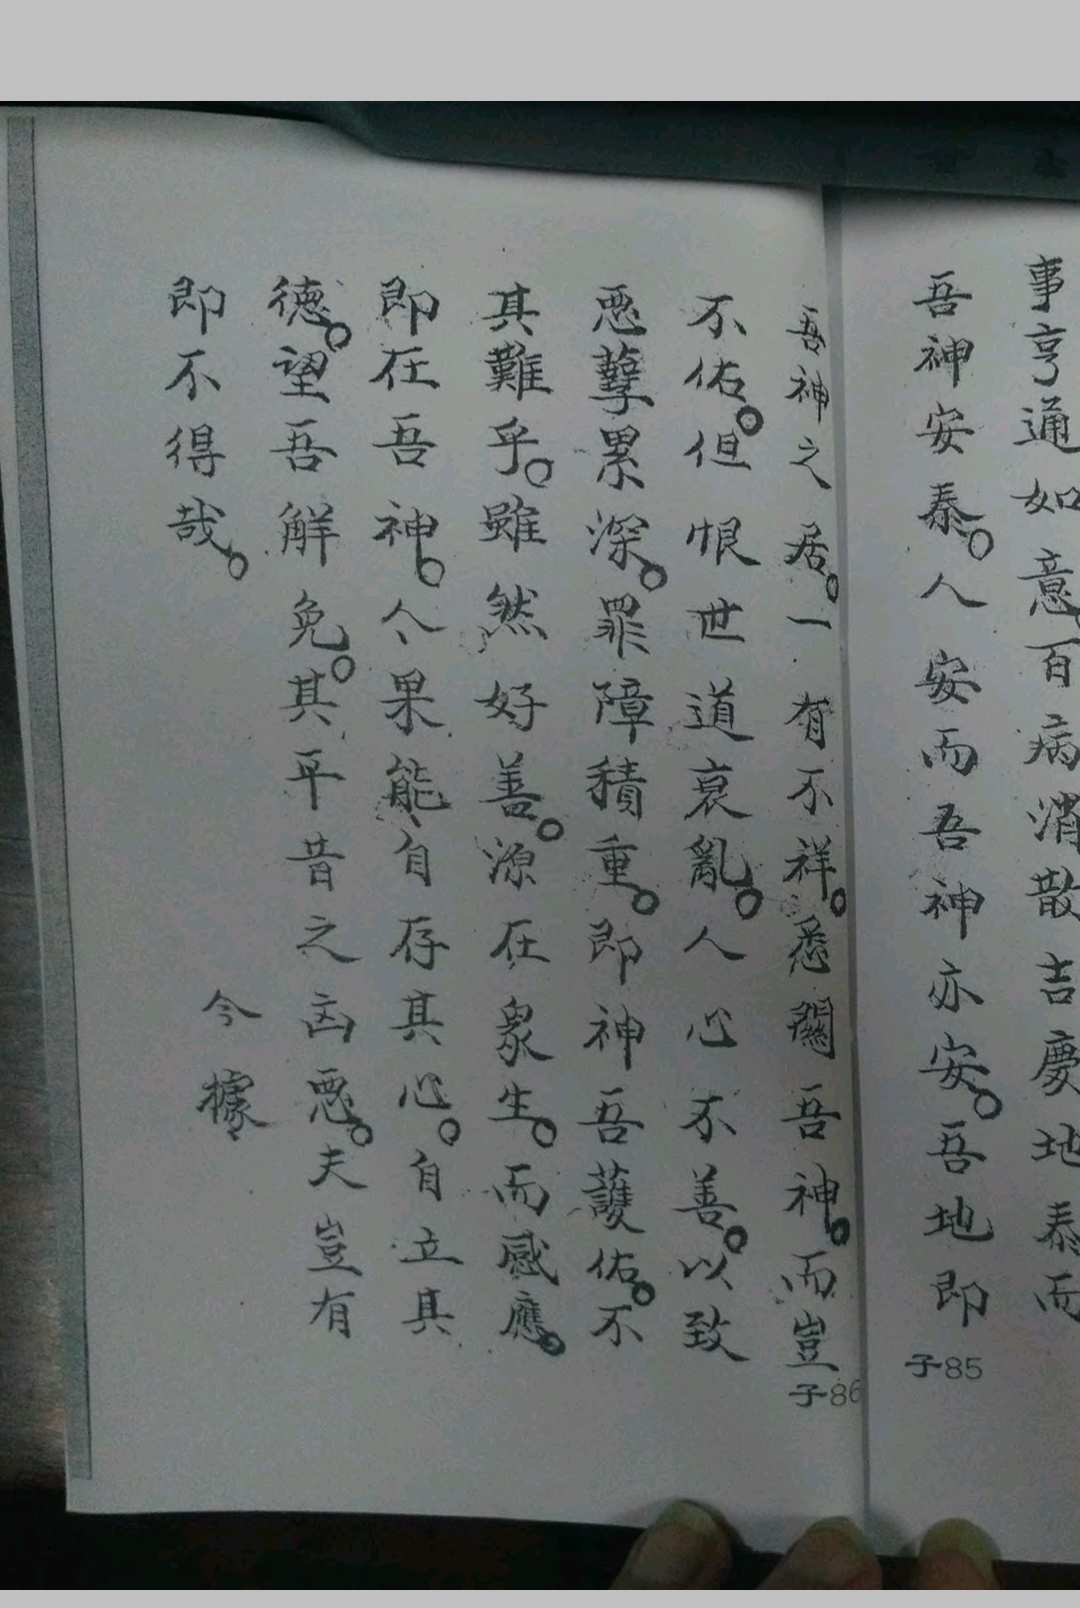 事亨通如意百病消散吉慶地泰而
吾神安泰。人安而吾神亦安。吾地即
子85
吾神之居。一有不祥。悉關吾神。而豈
子86
不佑。但恨世道衰亂。人心不善。以致
惡孽累深。罪障積重。即神吾護佑。不
其難乎。雖然好善。源在眾生。而感應。
即在吾神。人果能自存其心。自立其
德。望吾解免。其平昔之凶惡。夫豈有
即不得哉。
今據